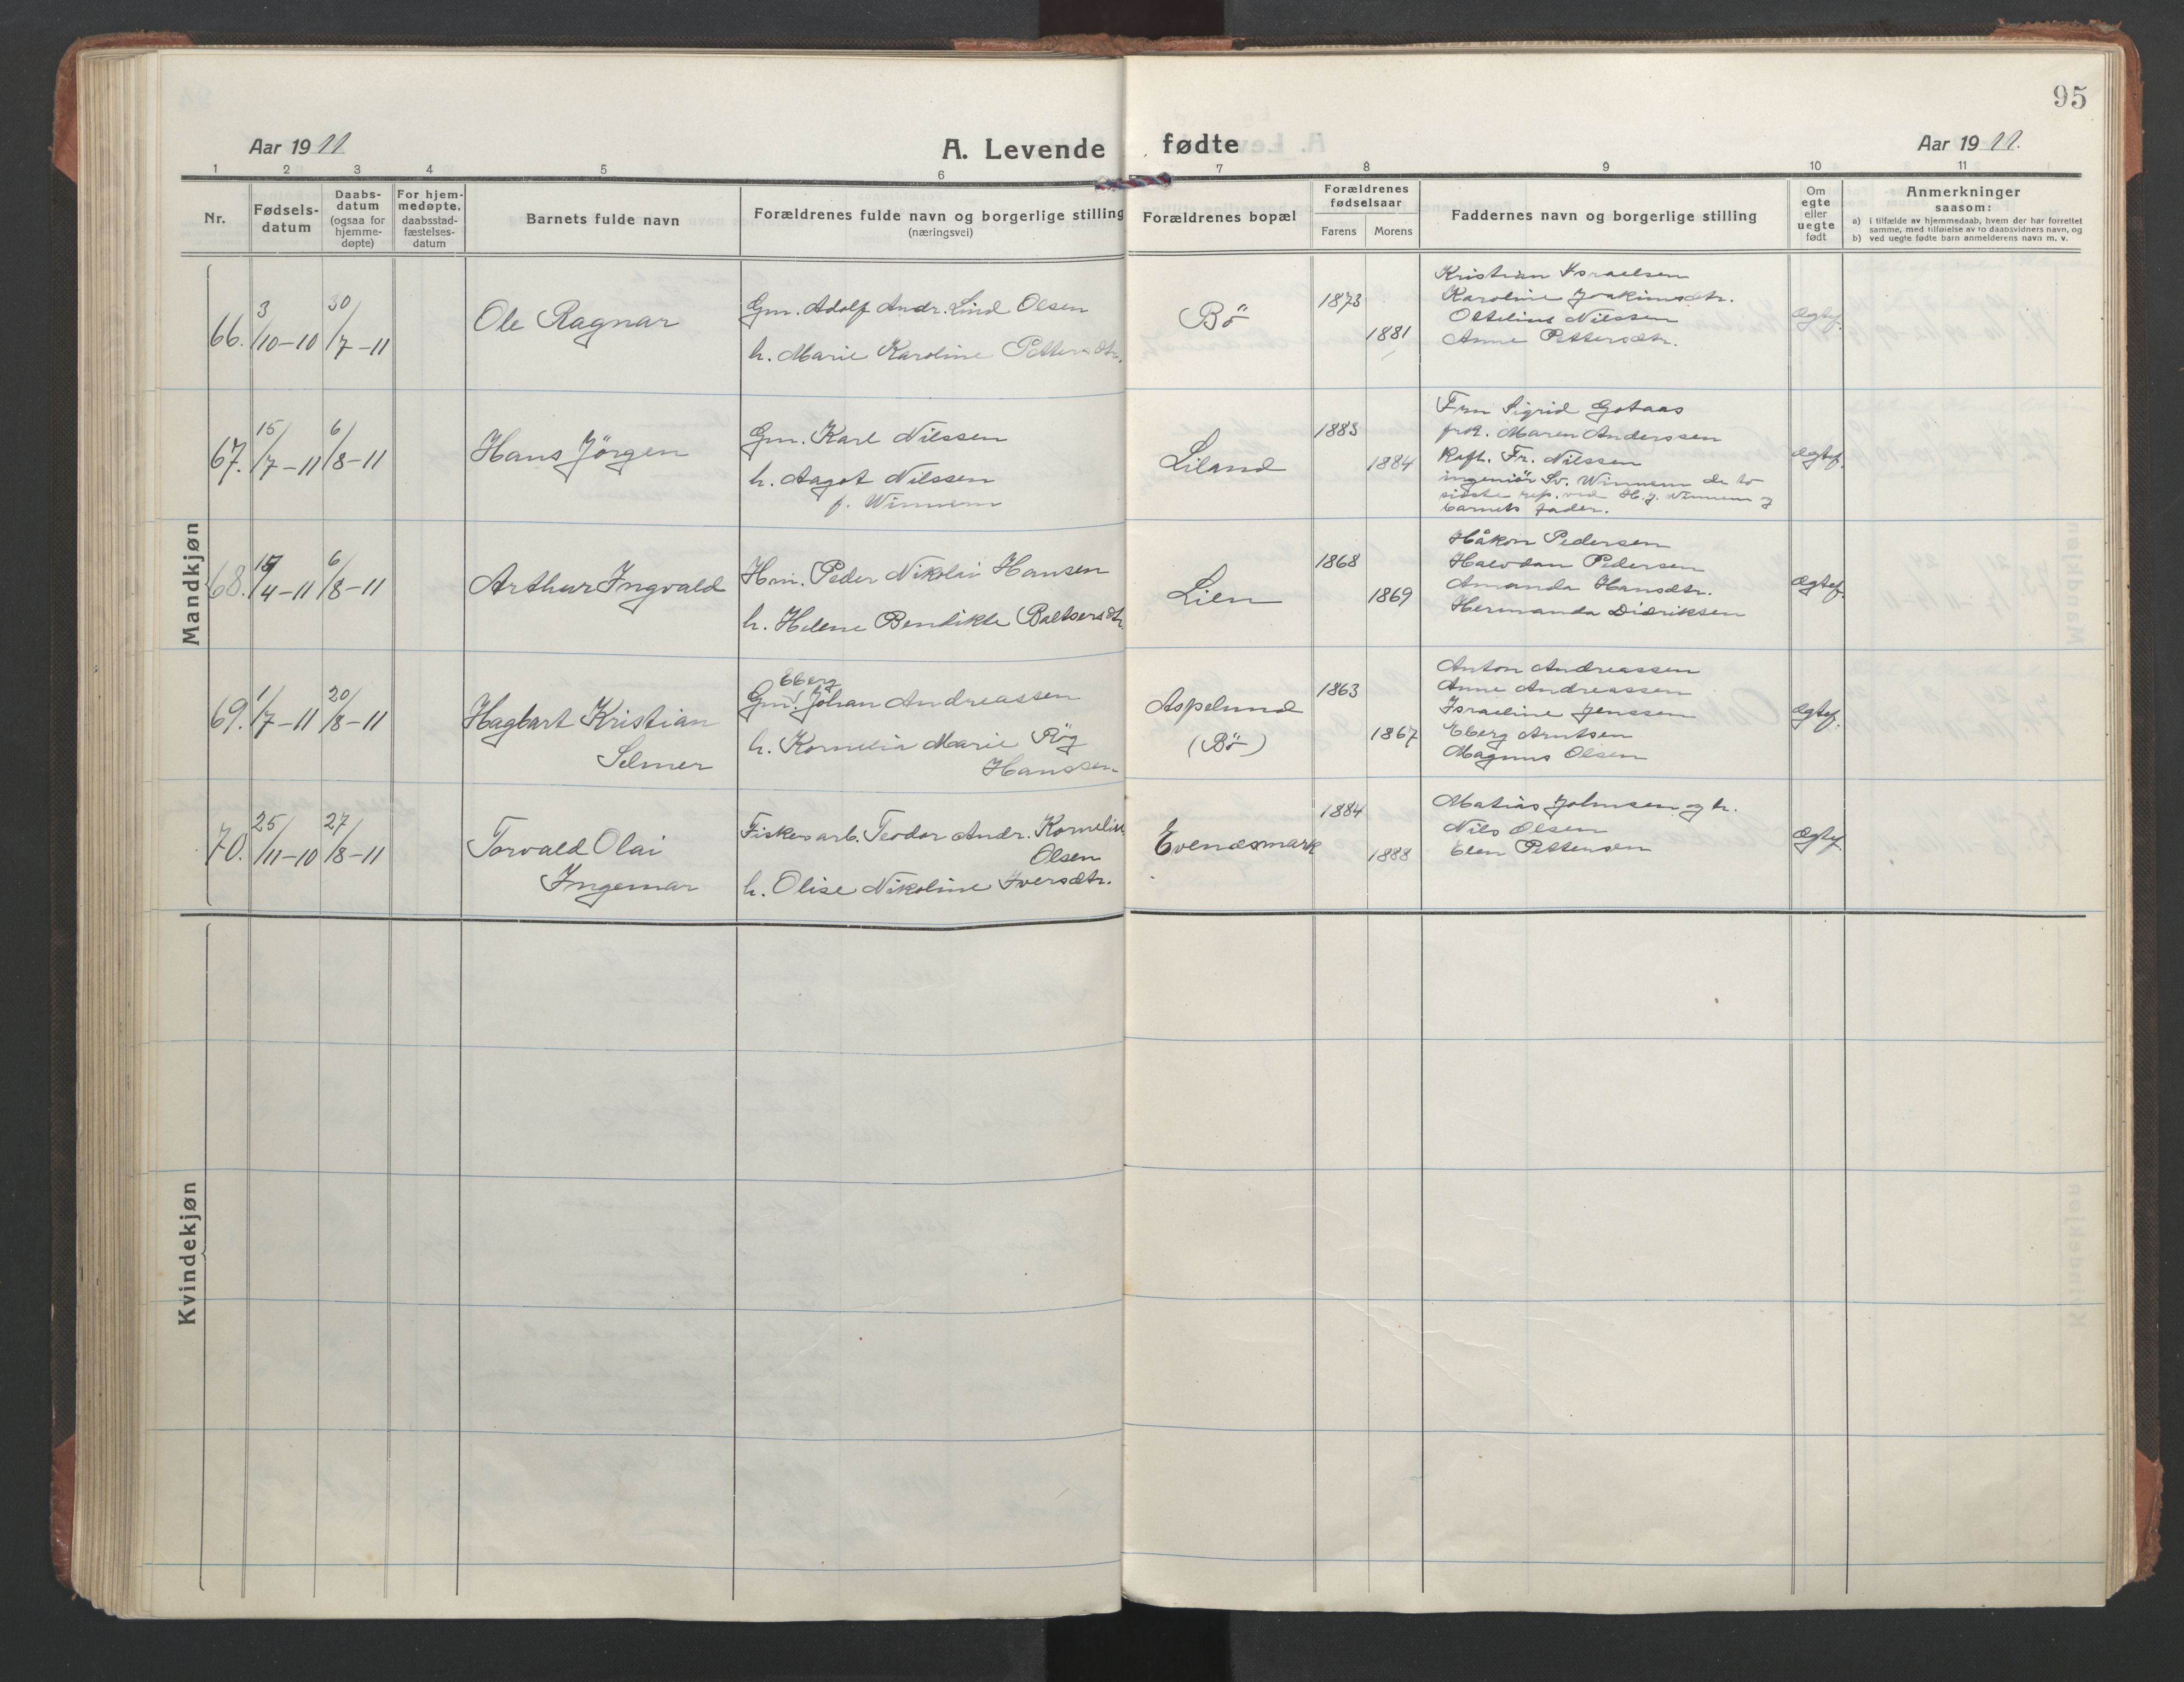 95
Aar 1911
A. Levende fødte
Aar 1911.
1 2 3 4 5 6 7 8 9 10 11
Nr.
Fødsels-
datum
Daabs-
datum
(ogsaa for
hjemme-
døpte)
For hjem-
medøpte,
daabsstad-
fæstelses-
datum
Barnets fulde navn
Forældrenes fulde navn og borgerlige stilling
(næringsvei)
Forældrenes bopæl
Forældrenes
fødselsaar
Farens Morens
Faddernes navn og borgerlige stilling
Om
egte
eller
uegte
født
Anmerkninger
saasom:
a) i tilfælde av hjemmedaab, hvem der har forrettet
samme, med tilføielse av to daabsvidners navn, og
b) ved uegte fødte barn anmelderens navn m. v.
Mandkjøn
66. 3/10-10 30/7-11
Ole Ragnar
Gm. Adolf Andr. Lind Olsen
h. Marie Karoline Pettersdtr.
Bö
1873
1881
Kristian Israelsen
Karoline Joakimsdtr.
Ottelius Nilssen
Anne Pettersdtr.
Ægtef.
67. 15/7-11 6/8-11
Hans Jörgen
Gm. Karl Nilssen
h. Aagot Nilssen
f. Winnem
Liland
1883
1884
Fru Sigrid Gotaas
frk. Maren Anderssen
Kafh. Fr. Nilssen
ingeniör Sv. Winnem de to
sidste rep. ved H. J. Winnem og
barnets fader.
Ægtef.
68. 15/4-11 6/8-11
Arthur Ingvald
Hm. Peder Nikolai Hansen
h. Helene Bendikte Baltsersdtr.
Lien
1868
1869
Håkon Pedersen
Halvdan Pedersen
Amanda Hansdtr.
Hermanda Didriksen
Ægtef.
69. 1/7-11 20/8-11
Hagbart Kristian
Selmer
Ebberg
Gm. Johan Andreassen
h. Kornelia Marie Røg
Hanssen
Aspelund
(Bö)
1863
1867
Anton Andreassen
Anne Andreassen
Israeline Jenssen
Eberg Arntsen
Magnus Olsen
Ægtef.
70. 25/11-10 27/8-11
Torvald Olai
Ingemar
Fiskerarb. Teodor Andr. Kornelius
Olsen
h. Olise Nikoline Iversdtr.
Evenesmark
1884
1888
Matias Johnsen og h.
Nils Olsen
Elen Pettersen
Ægtef.
Kvindekjøn